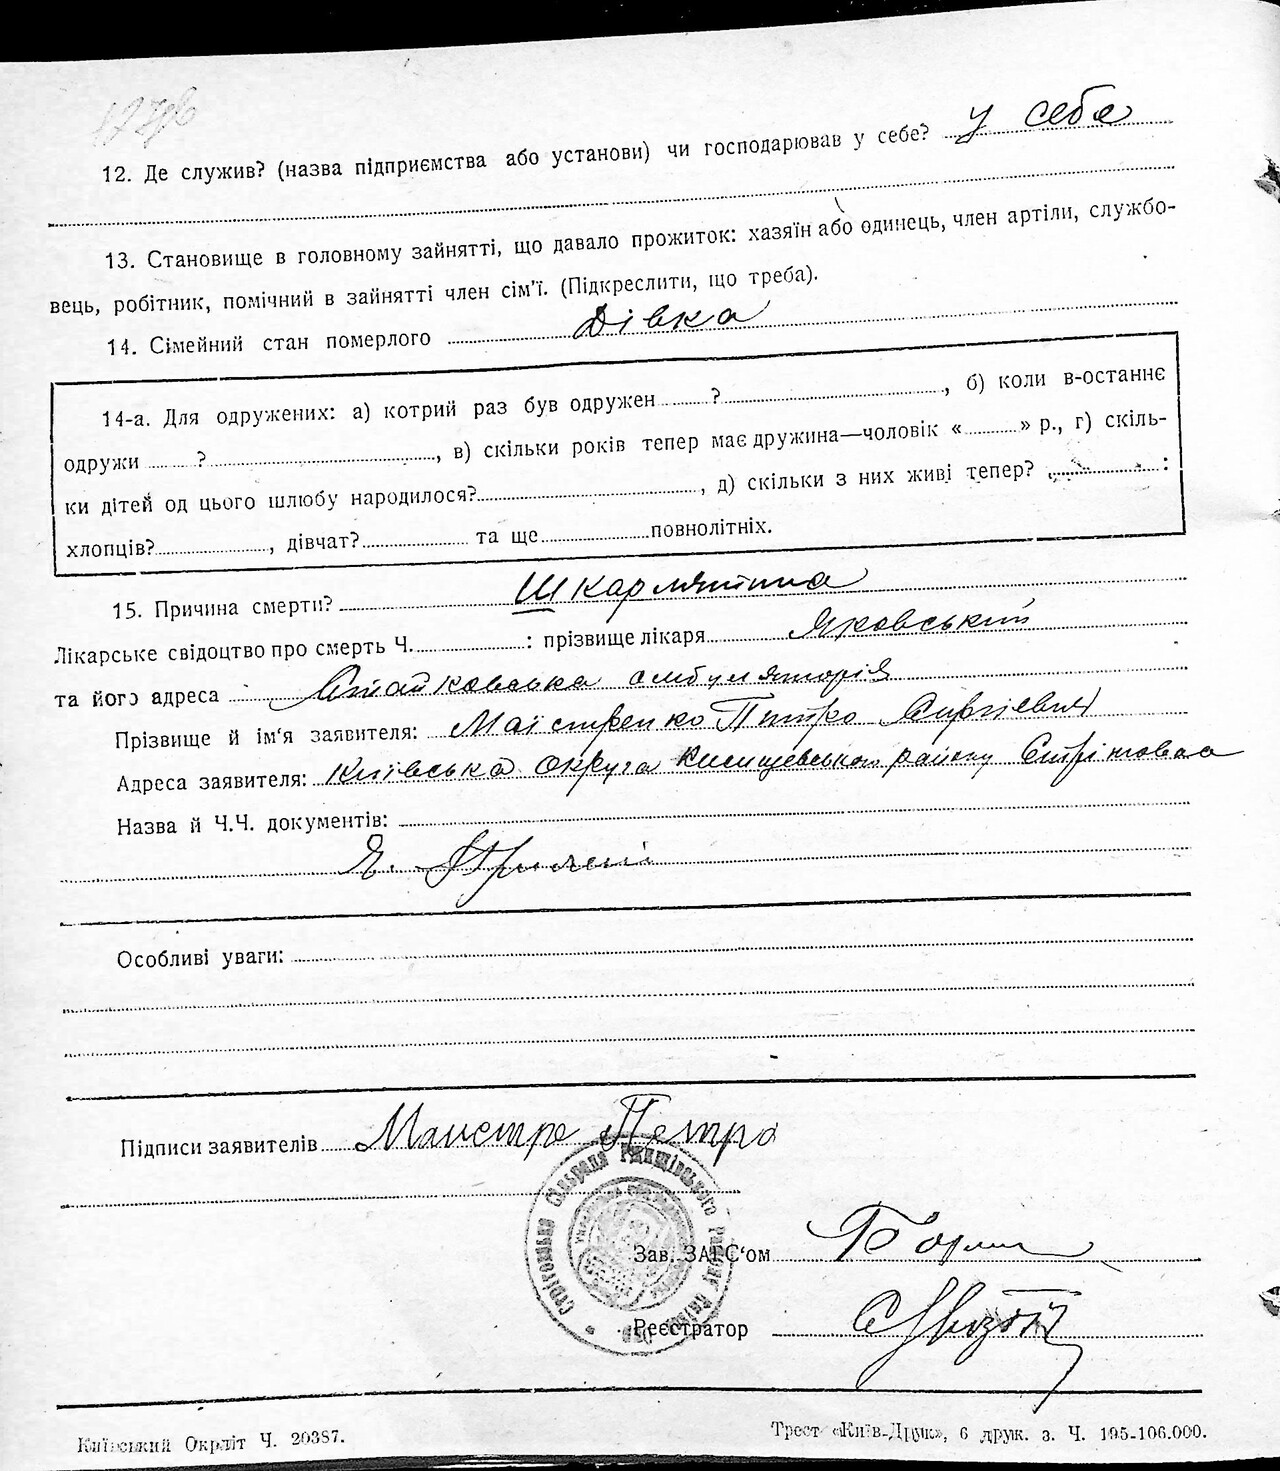 12. Де служив? (назва підприємства або установи) чи господарював у себе? у себе
13. Становище в головному зайнятті, що давало прожиток: хазяїн або одинець, член артіли, службо-
вець, робітник, помічний в зайнятті член сім'ї. (Підкреслити, що треба).
14. Сімейний стан померлого Дівка
14-а. Для одружених: а) котрий раз був одружен ? , б) коли в-останнє
одружи ? , в) скільки років тепер має дружина—чоловік « » р., г) скіль-
ки дітей од цього шлюбу народилося? , д) скільки з них живі тепер? :
хлопців? , дівчат? та ще повнолітніх.
15. Причина смерти? Шкарлятина
Лікарське свідоцтво про смерть Ч. : прізвище лікаря Яковський
та його адреса Стайковська амбуляторія
Прізвище й ім'я заявителя: Майстренко Петро Сергієвич
Адреса заявителя: Київська округа район
Назва й Ч.Ч. документів:
Особливі уваги:
Підписи заявителів Майстре Петро
Стрітовська Сільрада Ржищівського Району
Зав. ЗАГС'ом
Реєстратор
Київський Окрліт Ч. 20387.
Трест «Київ-Друк», 6 друк. з. Ч. 195-106.000.